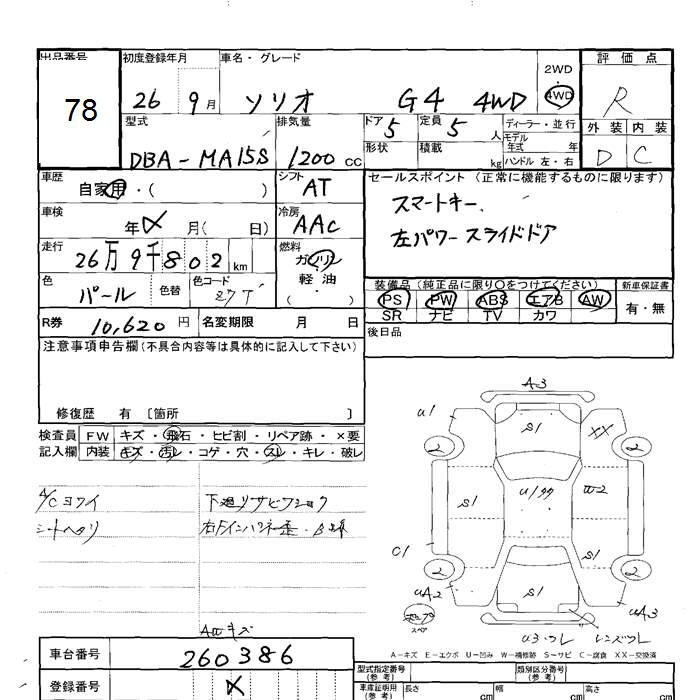 出品番号 初度登録年月 車名・グレード 2WD 評価点
78 26 9月 ソリオ G4 4WD 4WD R
型式 排気量 ドア 5 定員 5人 ディーラー・並行 外装 内装
DBA-MA15S 1200cc 形状 積載 kg モデル年式 年 ハンドル 左・右 D C
車歴 自家用・( ) シフト AT セールスポイント(正常に機能するものに限ります)
車検 年 月( 日) 冷房 AAC スマートキー、
左パワースライドドア
走行 26万9千802km 燃料 ガソリン 軽油 ( )
色 パール 色替 色コード 装備品(純正品に限り○をつけてください) 新車保証書
PS PW ABS エアB AW 有・無
SR ナビ TV カワ
R券 10,620円 名変期限 月 日 後日品
注意事項申告欄(不具合内容等は具体的に記入して下さい)
修復歴 有 〔箇所 〕
検査員 FW キズ・飛石・ヒビ割・リペア跡・×要
記入欄 内装 キズ・汚レ・コゲ・穴・スレ・キレ・破レ
A/Cヨワイ 下廻リサビフショク
シートヘタリ
A3
U1 S1 XX
2 2
S1 W2
C1 S1
2 S1 2
UA2 UA3
スペア
U3・ワレ レンズワレ
A-キズ E-エクボ U-凹み W-補修跡 S-サビ C-腐食 XX-交換済
車台番号 260386
登録番号
型式指定番号(参考) 類別区分番号(参考)
車庫証明用(参考) 長さ cm 幅 cm 高さ cm